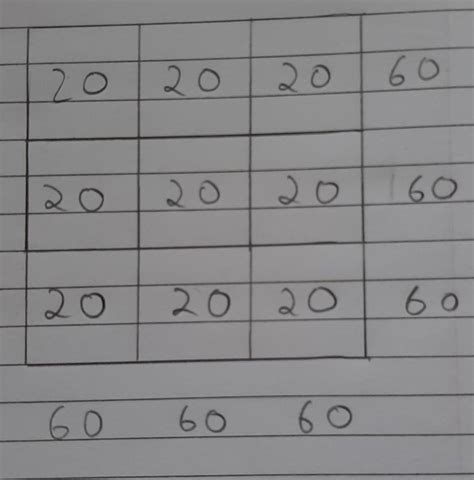 20 20 20 60
20 20 20 60
20 20 20 60
60 60 60